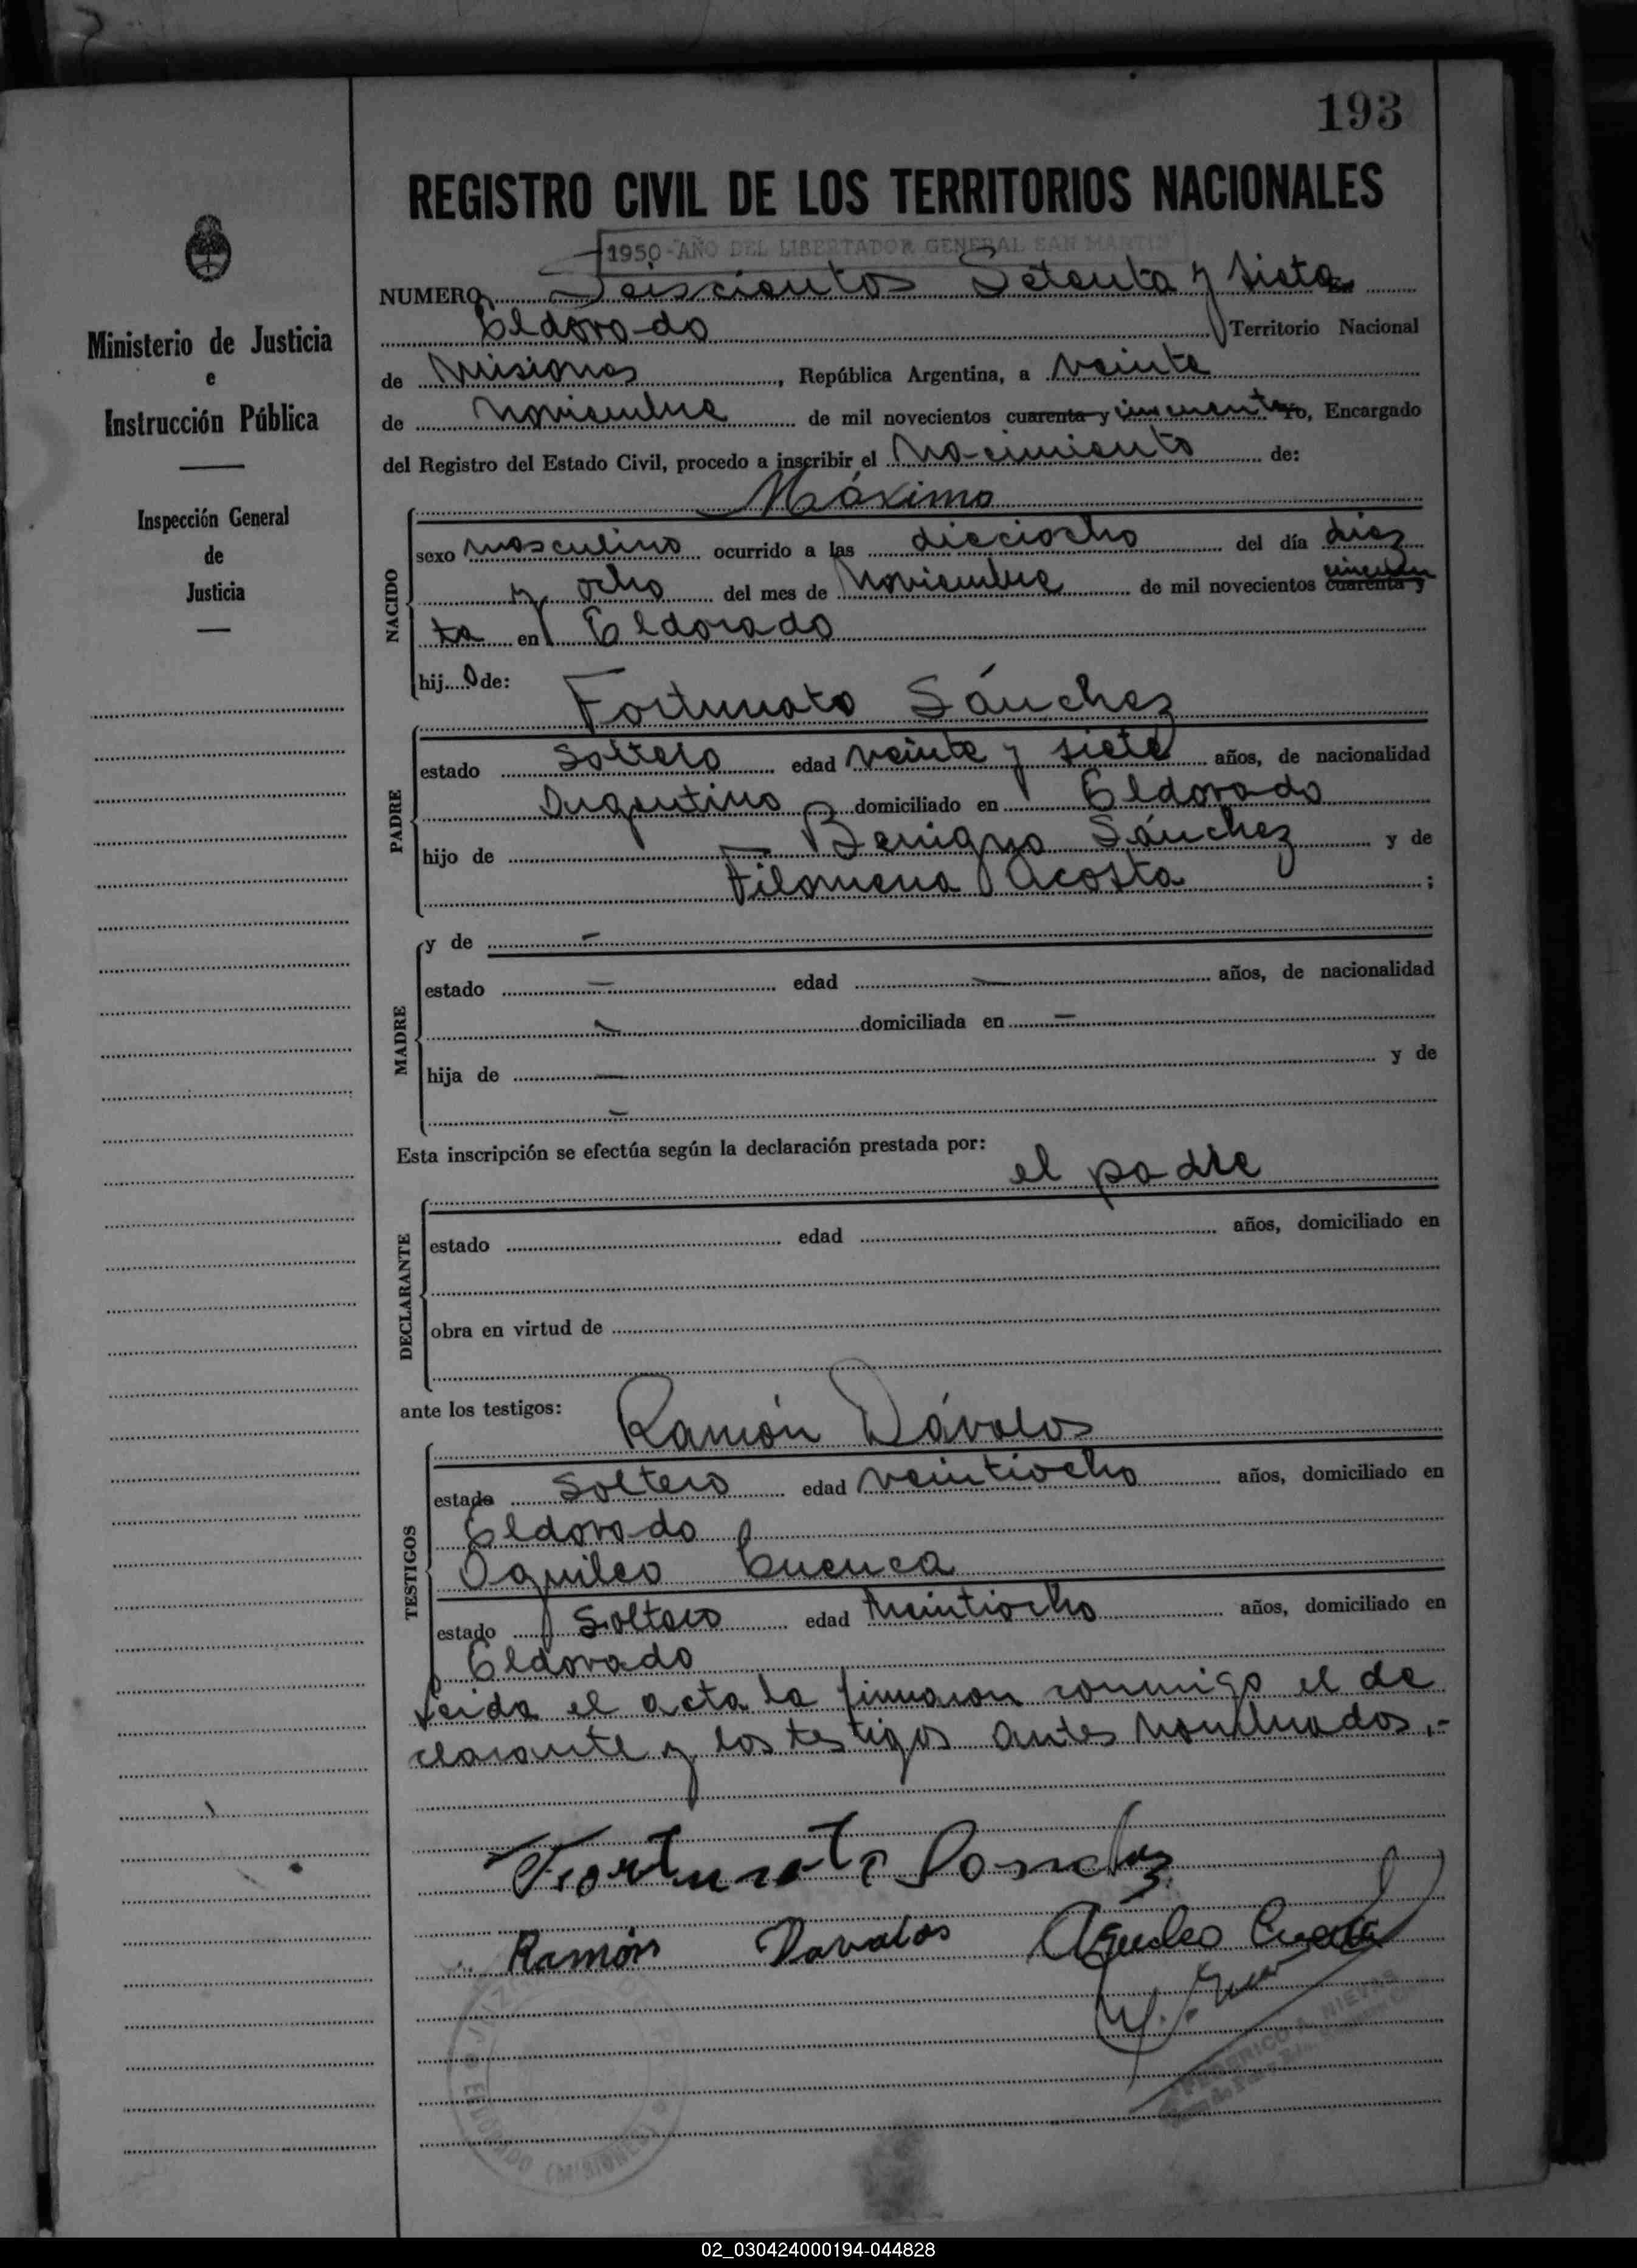 193
REGISTRO CIVIL DE LOS TERRITORIOS NACIONALES
1950-AÑO DEL LIBERTADOR GENERAL SAN MARTIN
Ministerio de Justicia
e
Instrucción Pública
Inspección General
de
Justicia
NUMERO Seiscientos Setenta y siete En
Eldorado Territorio Nacional
de Misiones, República Argentina, a veinte
de Noviembre de mil novecientos cuarenta y cincuenta Yo, Encargado
del Registro del Estado Civil, procedo a inscribir el Nacimiento de:
Máximo
NACIDO
sexo masculino ocurrido a las dieciocho del día diez
y ocho del mes de Noviembre de mil novecientos cuarenta y cincuen
ta en Eldorado
hijo de:
Fortunato Sánchez
PADRE
estado Soltero edad veinte y siete años, de nacionalidad
Argentino domiciliado en Eldorado
hijo de Benigno Sánchez y de
Filomena Acosta ;
MADRE
y de —
estado — edad — años, de nacionalidad
— domiciliada en —
hija de — y de
—
Esta inscripción se efectúa según la declaración prestada por:
el padre
DECLARANTE
estado edad años, domiciliado en
obra en virtud de
ante los testigos:
Ramón Dávalos
TESTIGOS
estado Soltero edad veintiocho años, domiciliado en
Eldorado
Aquileo Cuenca
estado Soltero edad veintiocho años, domiciliado en
Eldorado
Leida el acta la firmaron conmigo el de
clarante y los testigos antes nombrados.-
Fortunato Sanchez
Ramón Davalos Aquileo Cuenca
ELDORADO (MISIONES)
02_030424000194-044828